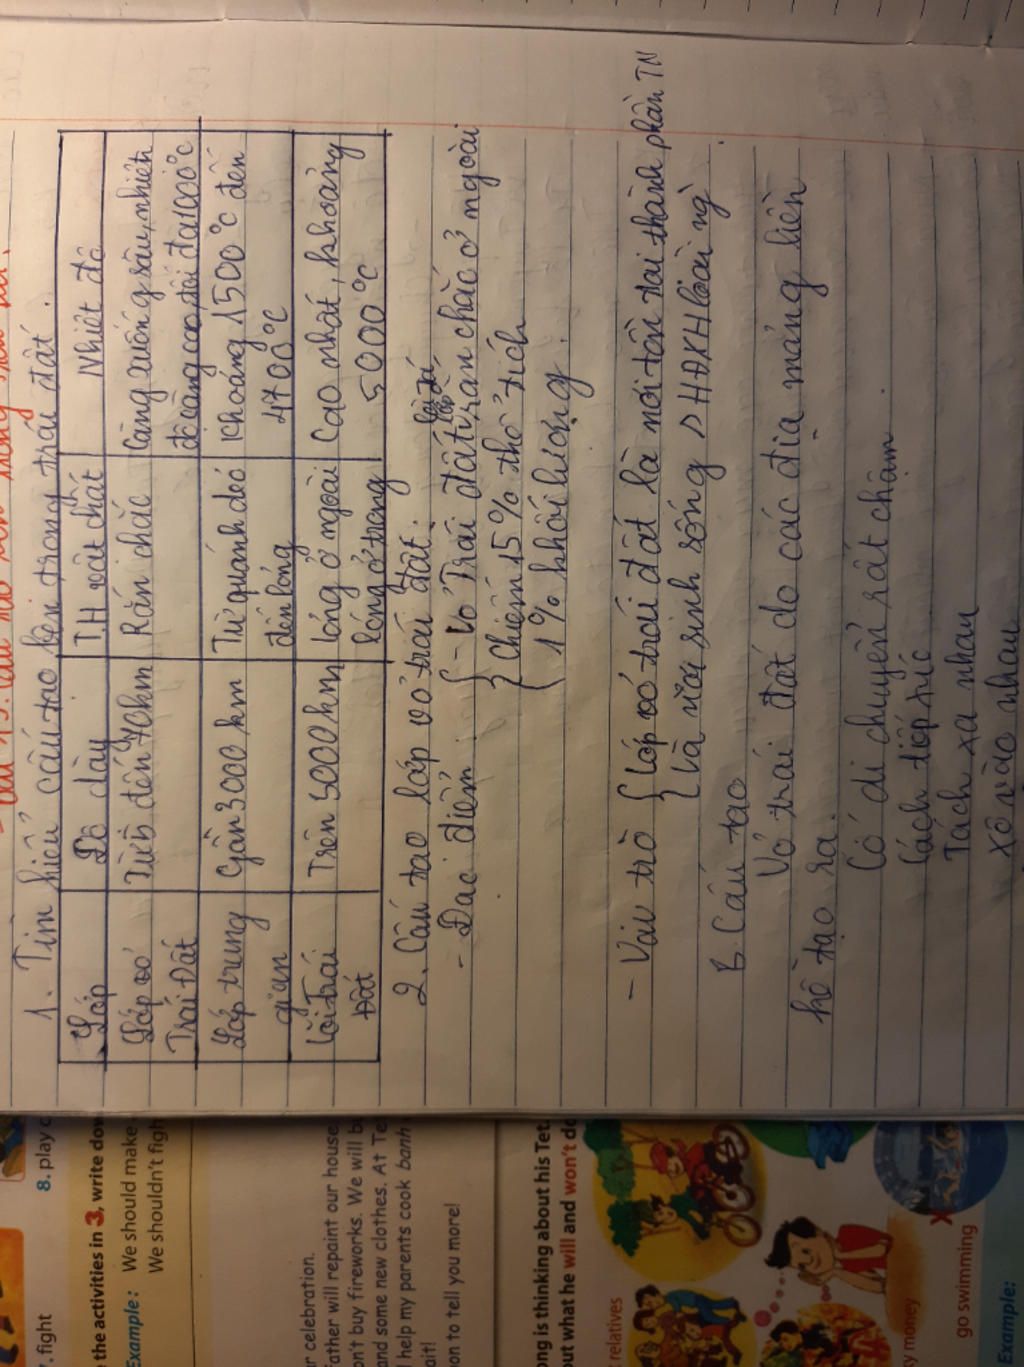 1. Tìm hiểu cấu tạo bên trong trái đất.
Lớp | Độ dày | TH vật chất | Nhiệt độ
Lớp vỏ Trái Đất | Từ 5 đến 70km | Rắn chắc | Càng xuống sâu, nhiệt độ càng cao, tối đa 1000°C
Lớp trung gian | Gần 3000 km | Từ quánh dẻo đến lỏng | Khoảng 1500°C đến 4700°C
Lõi Trái Đất | Trên 3000 km | lỏng ở ngoài rắng ở trong | Cao nhất, khoảng 5000°C
2. Cấu tạo lớp vỏ trái đất.
- Đặc điểm
- Vỏ Trái đất rắn chắc ở ngoài
Chiếm 15% thể tích
1% khối lượng.
- Vai trò
lớp vỏ trái đất là nơi tồn tại thành phần TN
là nơi sinh sống HĐXH loài ng
B. Cấu tạo
Vỏ trái đất do các địa mảng liền
kề tạo ra.
Có di chuyển rất chậm
Cách tiếp xúc
Tách xa nhau
Xô vào nhau
8. play
7. fight
the activities in 3, write dow
Example: We should make
We shouldn't figh
r celebration.
ather will repaint our house
on't buy fireworks. We will bu
and some new clothes. At Te
l help my parents cook banh
ait!
on to tell you more!
ong is thinking about his Tet.
out what he will and won't do
relatives
y money
go swimming
Example: